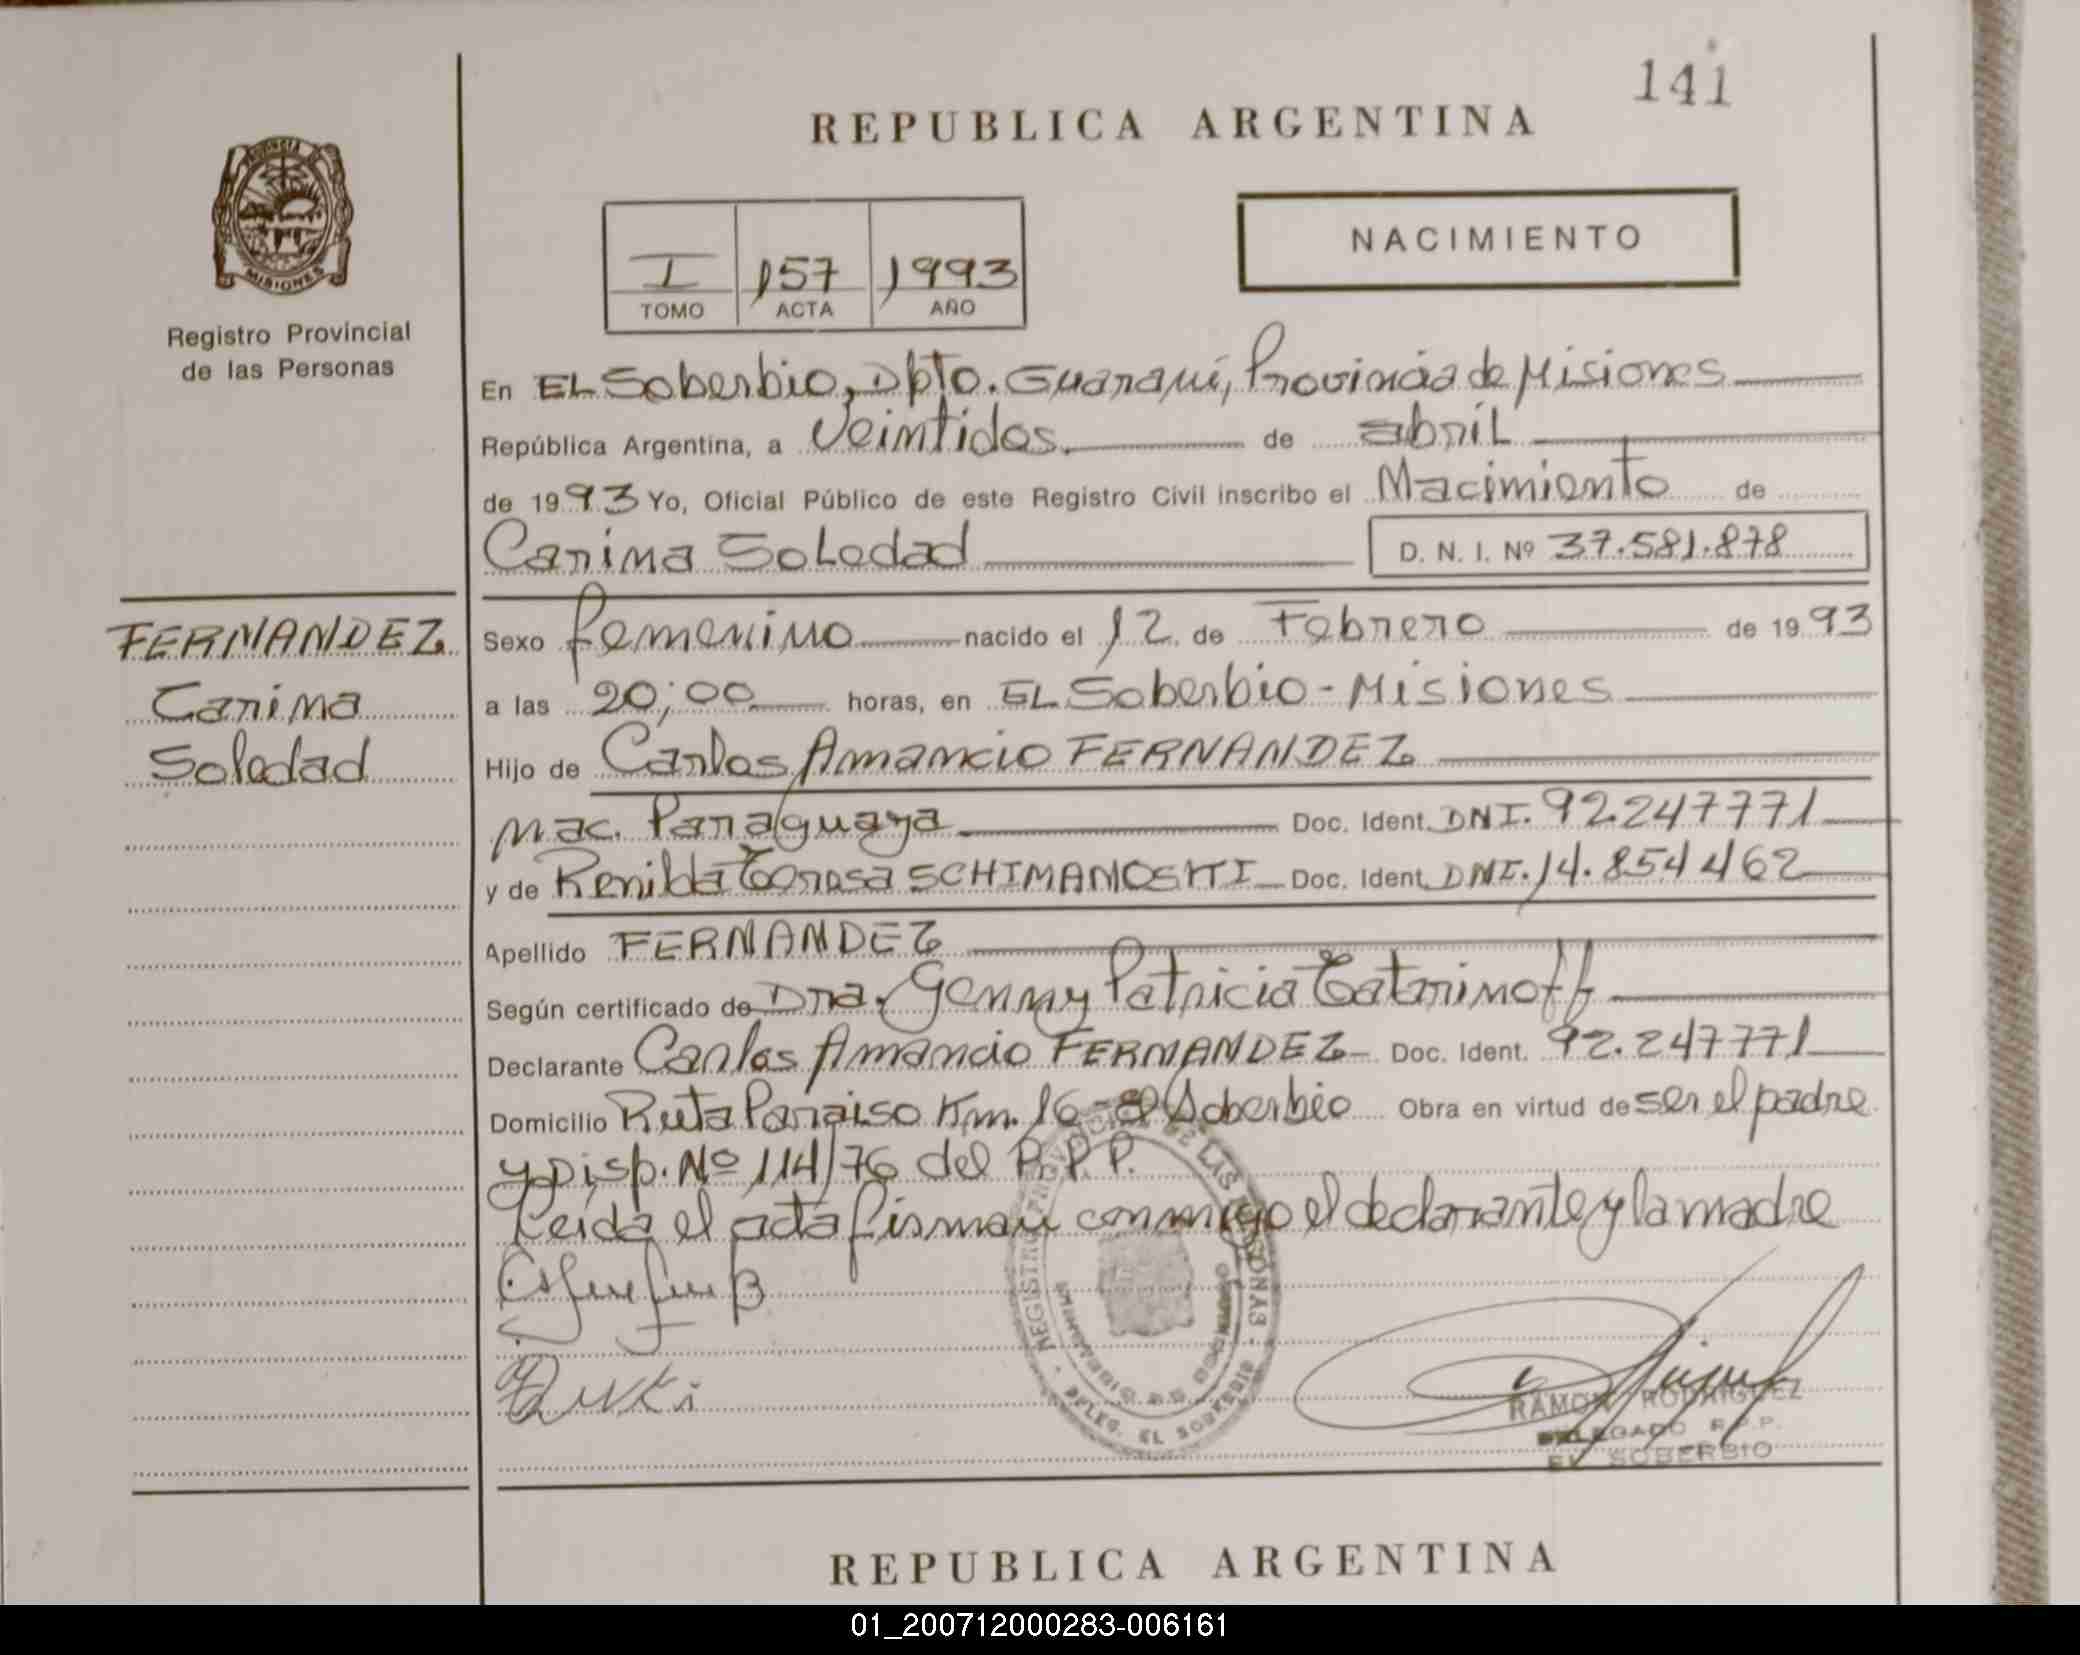 141
REPUBLICA ARGENTINA
PROVINCIA DE
MISIONES
Registro Provincial
de las Personas
I 157 1993
TOMO ACTA AÑO
NACIMIENTO
En EL Soberbio, Dpto. Guaraní, Provincia de Misiones
República Argentina, a Veintidos de abril
de 1993 Yo, Oficial Público de este Registro Civil inscribo el Nacimiento de
Carina Soledad D. N. I. Nº 37.581.878
FERNANDEZ
Carina
Soledad
Sexo femenino nacido el 12 de Febrero de 1993
a las 20;00 horas, en EL Soberbio - Misiones
Hijo de Carlos Amancio FERNANDEZ
nac. Paraguaya Doc. Ident. DNI. 92.247771
y de Renilda Teresa SCHIMANOSKI Doc. Ident. DNI. 14.854462
Apellido FERNANDEZ
Según certificado de Dra. Genny Patricia Tatarinoff
Declarante Carlos Amancio FERNANDEZ Doc. Ident. 92.247771
Domicilio Ruta Paraiso Km. 16 - El Soberbio Obra en virtud de ser el padre
y Disp. Nº 114/76 del R.P.P.
Leida el acta firman conmigo el declarante y la madre
REGISTRO PROVINCIAL DE LAS PERSONAS
DELEG. EL SOBERBIO
RAMON RODRIGUEZ
DELEGADO R.P.P.
EL SOBERBIO
REPUBLICA ARGENTINA
01_200712000283-006161